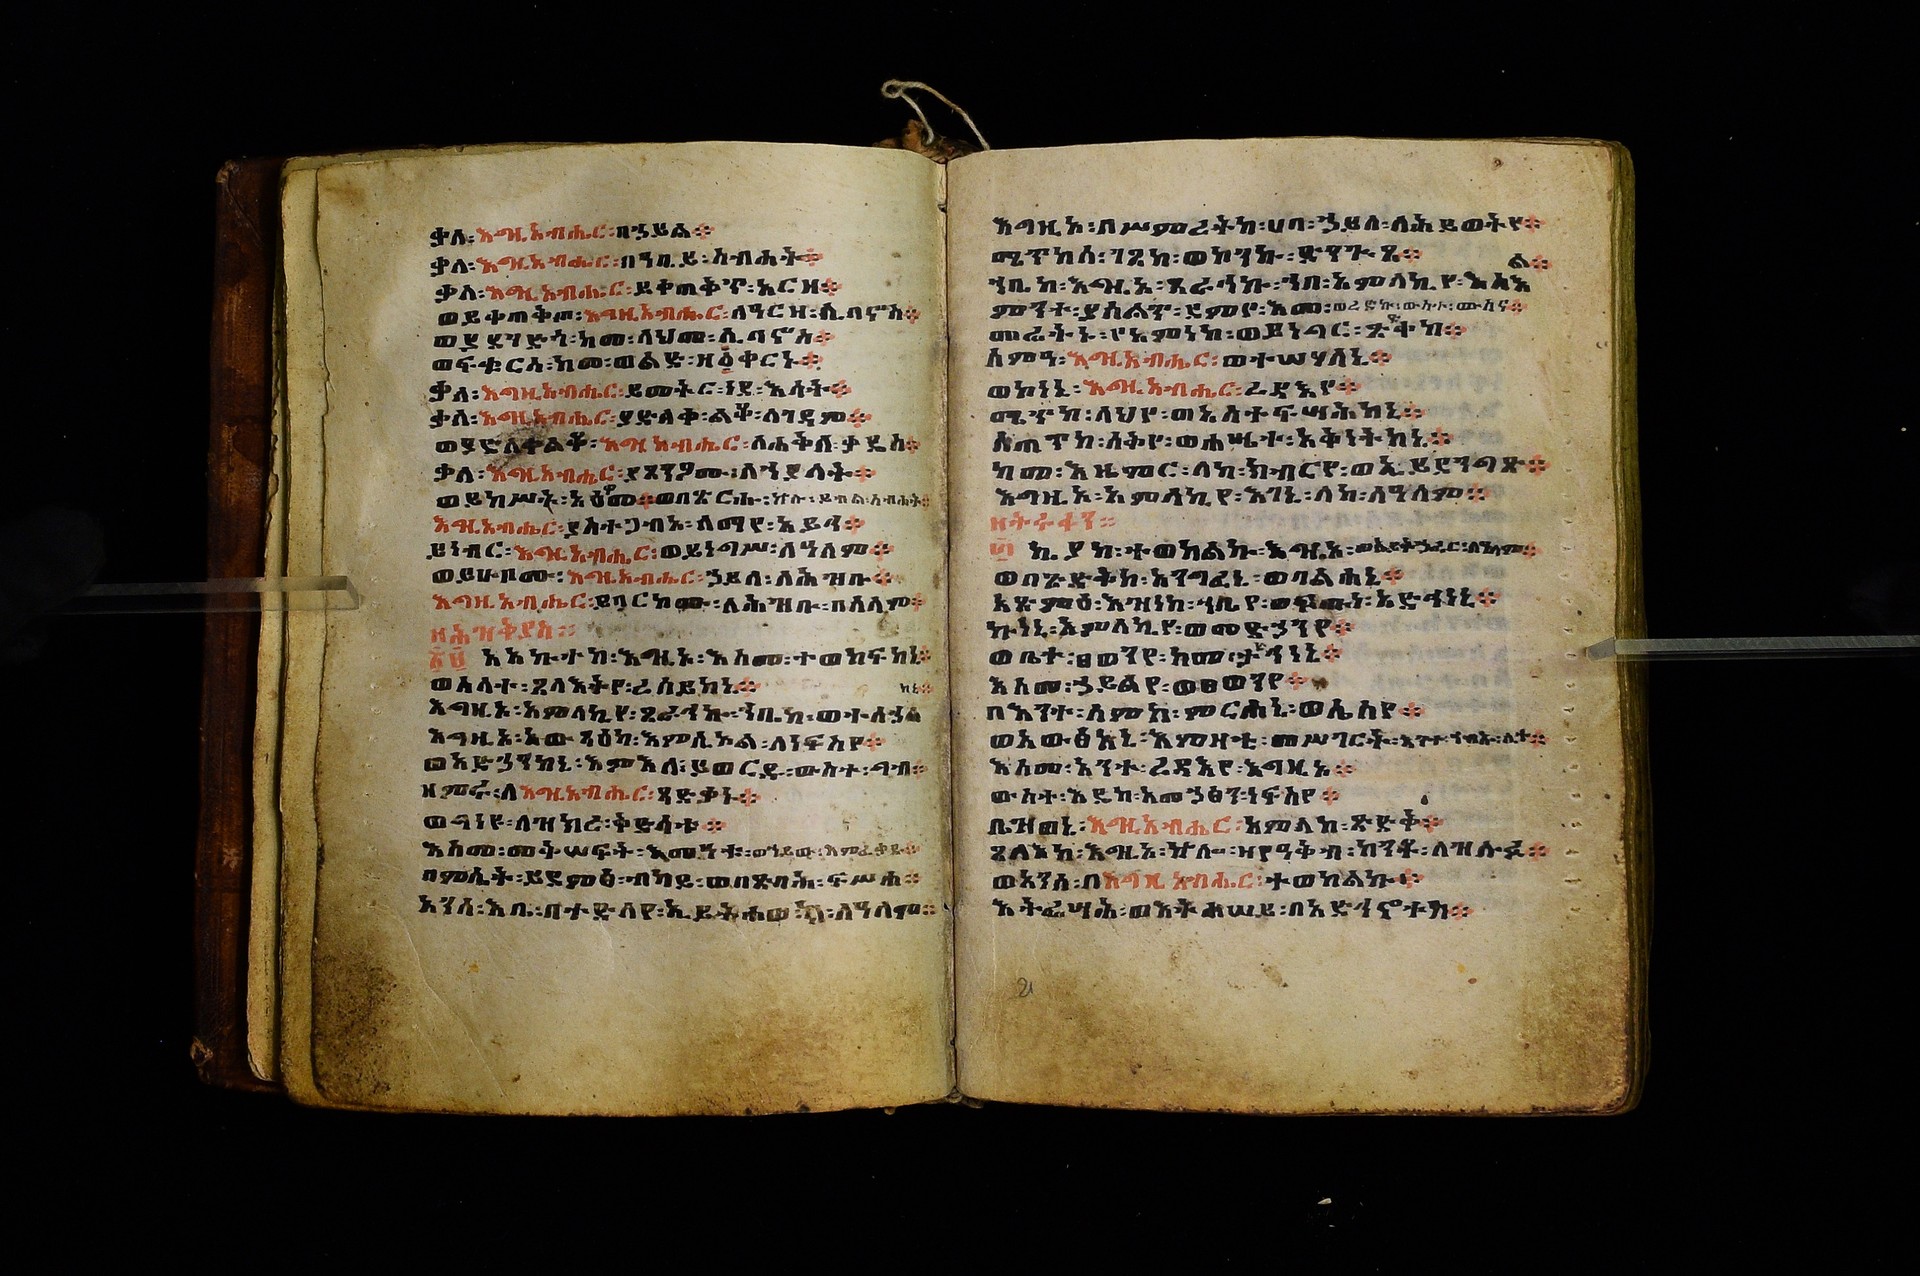 ቃለ፡እግዚአብሔር፡በኃይል፨
ቃለ፡እግዚአብሔር፡በዓቢይ፡ስብሐት፨
ቃለ፡እግዚአብሔር፡ይቀጠቅጥ፡አርዘ፨
ወይቀጠቅጦ፡እግዚአብሔር፡ለዓርዘ፡ሊባኖስ፨
ወያደነድኖ፡ከመ፡ላህመ፡ሊባኖስ፨
ወፍቁርሰ፡ከመ፡ወልድ፡ዘ፩ቀርኑ፨
ቃለ፡እግዚአብሔር፡ይመትር፡ነደ፡እሳት፨
ቃለ፡እግዚአብሔር፡ያድልቀ፡ልቆ፡ለገዳም፨
ወያድለቀልቆ፡እግዚአብሔር፡ለሐቅለ፡ቃዴስ፨
ቃለ፡እግዚአብሔር፡ያጸንዖሙ፡ለኀያላት፨
ወይከሥት፡አዕፆመ፨ወበጽርሑ፡ኵሉ፡ይብል፡ስብሐት፨
እግዚአብሔር፡ያስተጋብእ፡ለማየ፡አይኅ፨
ይነብር፡እግዚአብሔር፡ወይነግሥ፡ለዓለም፨
ወይሁቦሙ፡እግዚአብሔር፡ኃይለ፡ለሕዝቡ፨
እግዚአብሔር፡ይባርኮሙ፡ለሕዝቡ፡በሰላም፨
ዘሕዝቅያስ፨
፳፱ አአኵተከ፡እግዚኦ፡እስመ፡ተወከፍከኒ፨
ወአላተ፡ጸላእትየ፡ረሰይከኒ፨ ከኒ፨
እግዚኦ፡አምላኪየ፡ጸራኅኩ፡ኀቤከ፡ወተሰኃል
እግዚኦ፡አውጻዕከ፡እምሲኦል፡ለነፍስየ፨
ወአድኃንከኒ፡እምእለ፡ይወርዱ፡ውስተ፡ግብ፨
ዘምሩ፡ለእግዚአብሔር፡ጻድቃኑ፨
ወግነዩ፡ለዝክረ፡ቅድሳቱ፨
እስመ፡መቅሠፍት፡እመዓቱ፡ወሐይው፡እምፈቃዱ፨
በምሴት፡ይደምፅ፡ብካይ፡ወበጽባሕ፡ፍሥሐ፨
አንሰ፡እቤ፡በተድላየ፡ኢይትሐወክ፡ለዓለም፨
እግዚኦ፡በሥምረትከ፡ሀባ፡ኃይለ፡ለሕይወትየ፨
ሜጥከሰ፡ገጸከ፡ወኮንኩ፡ድንጉጸ፨
ኀቤከ፡እግዚኦ፡ጸራኅኩ፡ኀበ፡አምላኪየ፡እስእ ል፨
ምንተ፡ያሰልጥ፡ደምየ፡እመ፡ወረድኩ፡ውስተ፡ሙስና፨
መሬትኑ፡የአምነከ፡ወይነግር፡ጽድቀከ፨
ሰምዓ፡እግዚአብሔር፡ወተሣሃለኒ፨
ወኮነኒ፡እግዚአብሔር፡ረዳኢየ፨
ሜጥከ፡ላህየ፡ወአስተፍሣሕከኒ፨
ሰጠጥከ፡ሰቅየ፡ወሐሤተ፡አቅነትከኒ፨
ከመ፡እዜምር፡ለከ፡ክብርየ፡ወኢይደንግጽ፨
እግዚኦ፡አምላኪየ፡እገኒ፡ለከ፡ለዓለም፨
ዘትሩፋን፨
፴ ኪያከ፡ተወከልኩ፡እግዚኦ፡ወኢይትኃፈር፡ለዓለም፨
ወበጽድቅከ፡አንግፈኒ፡ወባልሐኒ፨
አጽምዕ፡እዝነከ፡ኀቤየ፡ወፍጡነ፡አድኅነኒ፨
ኩነኒ፡አምላኪየ፡ወመድኃንየ፨
ወቤተ፡ፀወንየ፡ከመ፡ታድኅነኒ፨
እስመ፡ኃይልየ፡ወፀወንየ፨
በእንተ፡ስምከ፡ምርሐኒ፡ወሴስየ፨
ወአውፅአኒ፡እምዛቲ፡መሥገርት፡እንተ፡ኀብኡ፡ሊተ፨
እስመ፡አንተ፡ረዳእየ፡እግዚኦ፨
ውስተ፡እዴከ፡አመኃፅን፡ነፍስየ፨
ቤዝወኒ፡እግዚአብሔር፡አምላከ፡ጽድቅ፨
ጸላእከ፡እግዚኦ፡ኵሎ፡ዘየዓቅብ፡ከንቶ፡ለዝሉፉ፨
ወአንሰ፡በእግዚአብሔር፡ተወከልኩ፨
እትፌሣሕ፡ወእትሐሠይ፡በአድኅኖትከ፨
21